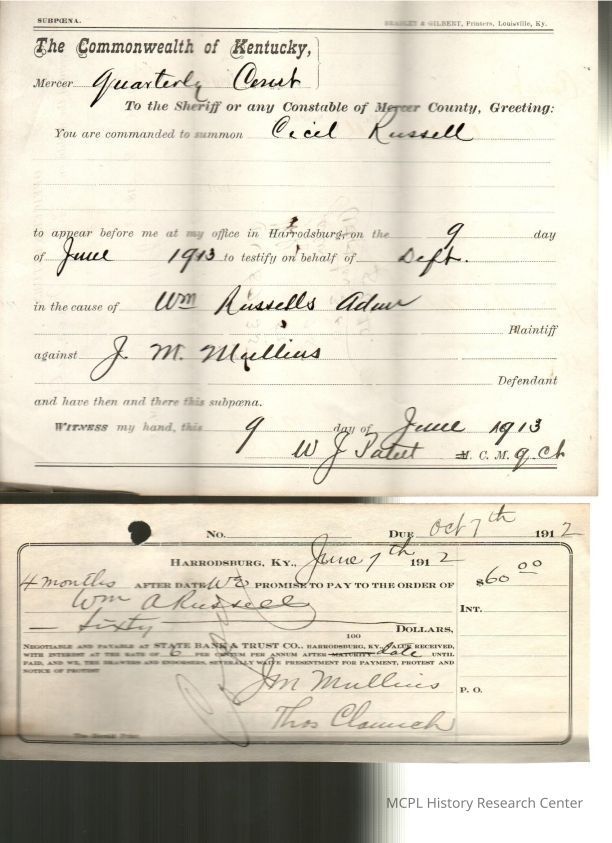 SUBPŒNA.
BRADLEY & GILBERT, Printers, Louisville, Ky.
The Commonwealth of Kentucky,
Mercer Quarterly Court
To the Sheriff or any Constable of Mercer County, Greeting:
You are commanded to summon Cecil Russell
to appear before me at my office in Harrodsburg, on the 9 day
of June 1913 to testify on behalf of Deft.
in the cause of Wm Russells Admr
Plaintiff
against J. M. Mullins
Defendant
and have then and there this subpœna.
WITNESS my hand, this 9 day of June 1913
W J
M. C. M. Q. Ct
No. DUE Oct 7th 1912
HARRODSBURG, KY., June 7th 1912
4 months AFTER DATE WE PROMISE TO PAY TO THE ORDER OF $60 00
Wm A Russell INT.
Sixty 100 DOLLARS,
NEGOTIABLE AND PAYABLE AT STATE BANK & TRUST CO., HARRODSBURG, KY. VALUE RECEIVED,
WITH INTEREST AT THE RATE OF 6 PER CENTUM PER ANNUM AFTER MATURITY date UNTIL
PAID, AND WE, THE DRAWERS AND ENDORSERS, SEVERALLY WAIVE PRESENTMENT FOR PAYMENT, PROTEST AND
NOTICE OF PROTEST
J M Mullins P. O.
Thos Claunch
The Herald Print
MCPL History Research Center